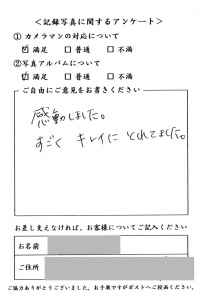 ＜記録写真に関するアンケート＞
① カメラマンの対応について
☑ 満足 □ 普通 □ 不満
②写真アルバムについて
☑ 満足 □ 普通 □ 不満
ご自由にご意見をお書きください
感動しました。
すごく キレイに とれてました。
お差し支えなければ、お客様についてご記入ください
お名前
ご住所
ご協力ありがとうございました。お手数ですがポストへご投函ください。